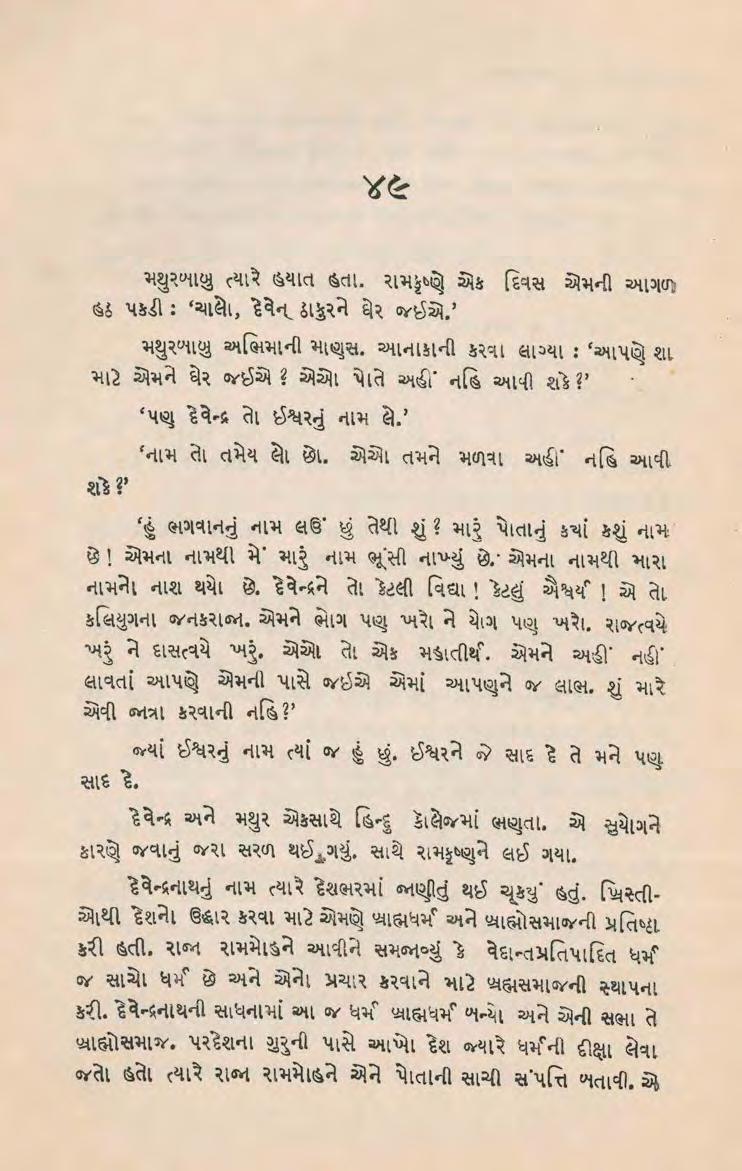 ૪૯
મથુરબાબુ ત્યારે હયાત હતા. રામકૃષ્ણે એક દિવસ એમની આગળ
હઠ પકડી : ‘ચાલો, દેવેન્ ઠાકુરને ઘેર જઈએ.’
મથુરબાબુ અભિમાની માણસ. આનાકાની કરવા લાગ્યા : ‘આપણે શા
માટે એમને ઘેર જઈએ ? એઓ પોતે અહીં નહિ આવી શકે?’
‘પણ દેવેન્દ્ર તો ઈશ્વરનું નામ લે.’
‘નામ તો તમેય લો છો. એઓ તમને મળવા અહીં નહિ આવી
શકે?’
‘હું ભગવાનનું નામ લઉં છું તેથી શું ? મારું પોતાનું કયાં કશું નામ
છે ! એમના નામથી મેં મારું નામ ભૂંસી નાખ્યું છે. એમના નામથી મારા
નામનો નાશ થયો છે. દેવેન્દ્રને તો કેટલી વિદ્યા ! કેટલું ઐશ્વર્ય ! એ તો
કલિયુગના જનકરાજા. એમને ભોગ પણ ખરો ને યોગ પણ ખરો. રાજત્વયે
ખરું ને દાસત્વયે ખરું. એઓ તો એક મહાતીર્થ. એમને અહીં નહીં
લાવતાં આપણે એમની પાસે જઈએ એમાં આપણને જ લાભ. શું મારે
એવી જાત્રા કરવાની નહિ?’
જ્યાં ઈશ્વરનું નામ ત્યાં જ હું છું. ઈશ્વરને જે સાદ દે તે મને પણ
સાદ દે.
દેવેન્દ્ર અને મથુર એકસાથે હિન્દુ કૉલેજમાં ભણતા. એ સુયોગને
કારણે જવાનું જરા સરળ થઈ ગયું. સાથે રામકૃષ્ણને લઈ ગયા.
દેવેન્દ્રનાથનું નામ ત્યારે દેશભરમાં જાણીતું થઈ ચૂકયું હતું. ખ્રિસ્તી-
ઓથી દેશનો ઉદ્ધાર કરવા માટે એમણે બ્રાહ્મધર્મ અને બ્રાહ્મોસમાજની પ્રતિષ્ઠા
કરી હતી. રાજા રામમોહને આવીને સમજાવ્યું કે વેદાન્તપ્રતિપાદિત ધર્મ
જ સાચો ધર્મ છે અને એનો પ્રચાર કરવાને માટે બ્રહ્મસમાજની સ્થાપના
કરી. દેવેન્દ્રનાથની સાધનામાં આ જ ધર્મ બ્રાહ્મધર્મ બન્યો અને એની સભા તે
બ્રાહ્મોસમાજ. પરદેશના ગુરુની પાસે આખો દેશ જ્યારે ધર્મની દીક્ષા લેવા
જતો હતો ત્યારે રાજા રામમોહને એને પોતાની સાચી સંપત્તિ બતાવી. એ